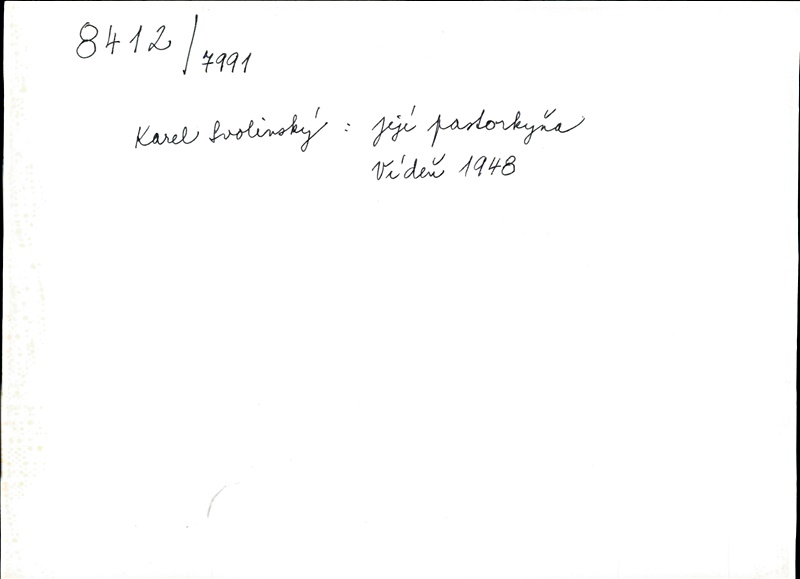 8412/7991
Karel Svolinský : její pastorkyňa
Vídeň 1948